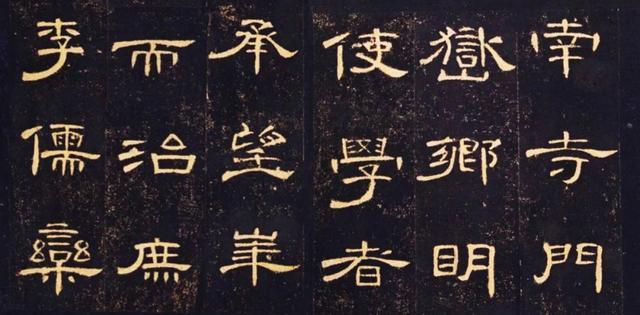 幸寺門
嶽鄉明
使學者
承望
而治庶
李儒欒